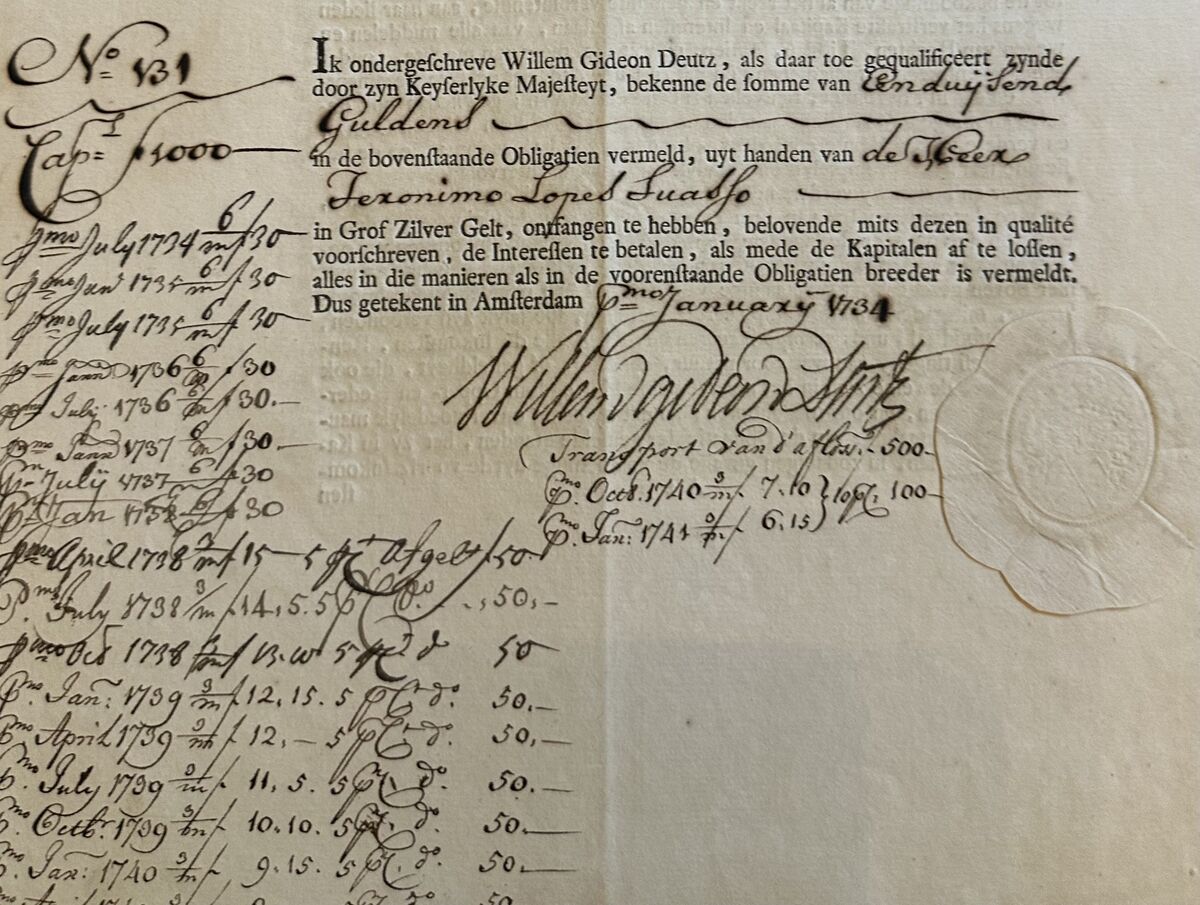 No 131
Ik ondergeschreve Willem Gideon Deutz, als daar toe gequalificeert zynde
door zyn Keyserlyke Majesteyt, bekenne de somme van Eenduijsend
Guldens
Capl f 1000
in de bovenstaande Obligatien vermeld, uyt handen van de Heer
Jeronimo Lopes Suasso
in Grof Zilver Gelt, ontfangen te hebben, belovende mits dezen in qualité
voorschreven, de Interessen te betalen, als mede de Kapitalen af te lossen,
alles in die manieren als in de voorenstaande Obligatien breeder is vermeldt.
Dus getekent in Amsterdam Pmo January 1734
Willem Gideon Deutz
Transport van d'afloss. 500
Pmo. Octb. 1740 3/m f 7.10 } 10 pCt 100
Pmo. Jan: 1741 3/m f 6.15
Pmo July 1734 6/m f 30
Pmo Jan 1735 6/m f 30
Pmo July 1735 6/m f 30
Pmo Jann 1736 6/m f 30
Pmo July 1736 6/m f 30.
Pmo Jann 1737 6/m f 30
Pmo July 1737 6/m f 30
Pmo Jan 1738 6/m f 30
Pmo April 1738 3/m f 15 5 pCt Afgelt f 50
Pmo July 1738 3/m f 14.5. 5 pCt do. 50.
Pmo Oct 1738 3/m f 13.10 5 pCt do 50
Pmo. Jan: 1739 3/m f 12.15. 5 pCt do. 50.
Pmo April 1739 3/m f 12. 5 pCt do. 50.
Pmo July 1739 3/m f 11.5. 5 pCt do. 50.
Pmo Octbr. 1739 3/m f 10.10. 5 pCt. do. 50.
Pmo Jan: 1740 3/m f 9.15. 5 pCt. do. 50.